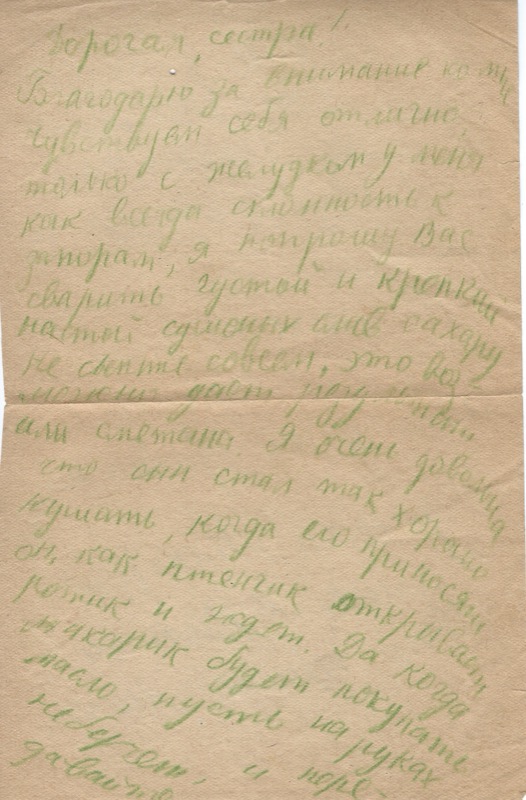 Дорогая, сестра!
Благодарю за внимание ко мне
чувствую себя отлично,
только с желудком у меня
как всегда склонность к
запорам, я попрошу Вас
сварить густой и крепкий
настой сушеных слив сахару
не сыпте совсем, это воз-
дает
или сметана. Я очень довольна
что он стал так хорошо
кушать, когда его приносят
он, как птенчик открывает
ротик и ждет. Да когда
будет покупать
масло, пусть на руках
не берет, и пере-
давайте